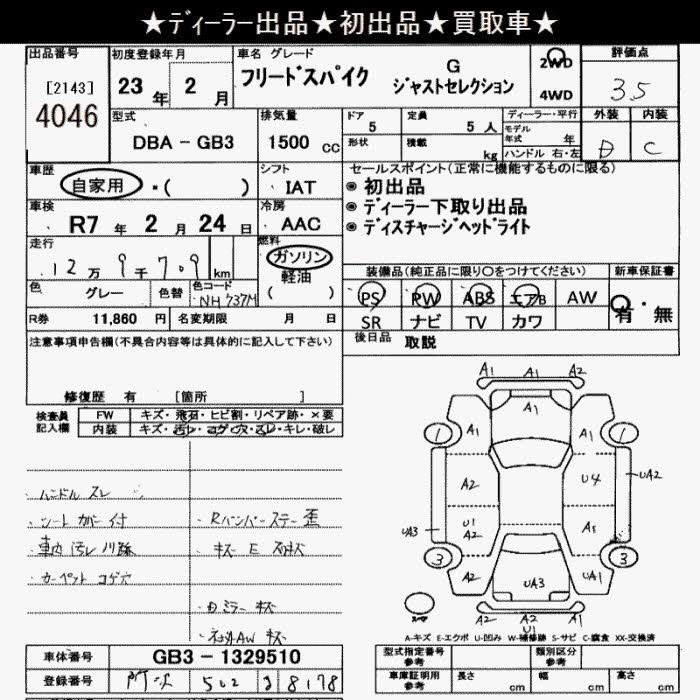 ★ディーラー出品★初出品★買取車★
出品番号 初度登録年月 車名 グレード 評価点
[2143] 23年 2月 フリードスパイク G ジャストセレクション 2WD 3.5
4046 4WD
型式 排気量 ドア 定員 ディーラー・平行 外装 内装
DBA-GB3 1500cc 5 5人 モデル年式 年 D C
形状 積載 kg ハンドル 右・左
車歴 シフト セールスポイント(正常に機能するものに限る)
自家用・( ) IAT ◉初出品
車検 冷房 ◉ディーラー下取り出品
R7年 2月 24日 AAC ◉ディスチャージヘッドライト
走行 燃料
12万9千709km ガソリン 装備品(純正品に限り○をつけてください) 新車保証書
軽油 PS PW ABS エアB AW 有・無
色 グレー 色替 色コード NH737M ( ) SR ナビ TV カワ
R券 11,860円 名変期限 月 日 後日品 取説
注意事項申告欄(不具合内容等は具体的に記入して下さい)
修復歴 有 [箇所 ]
検査員記入欄 FW キズ・飛石・ヒビ割・リペア跡・×要
内装 キズ・汚レ・コゲ・穴・スレ・キレ・破レ
ハンドル スレ
シートカバー付 Rバンパーステー歪
車内汚レ
カーペット コゲ穴
ミラー キズ
AW キズ
A1 A1 A2
A1
1 A1 1
A2 U4 UA2
UA3 U1 A2 A1
3 3
A2 UA3 UA1
スペア A2 A2 A2
U1
A-キズ E-エクボ U-凹み W-補修跡 S-サビ C-腐食 XX-交換済
車体番号 GB3-1329510 型式指定番号 参考 類別区分 参考
登録番号 所沢 502 8178 車庫証明用 参考 長さ cm 幅 cm 高さ cm